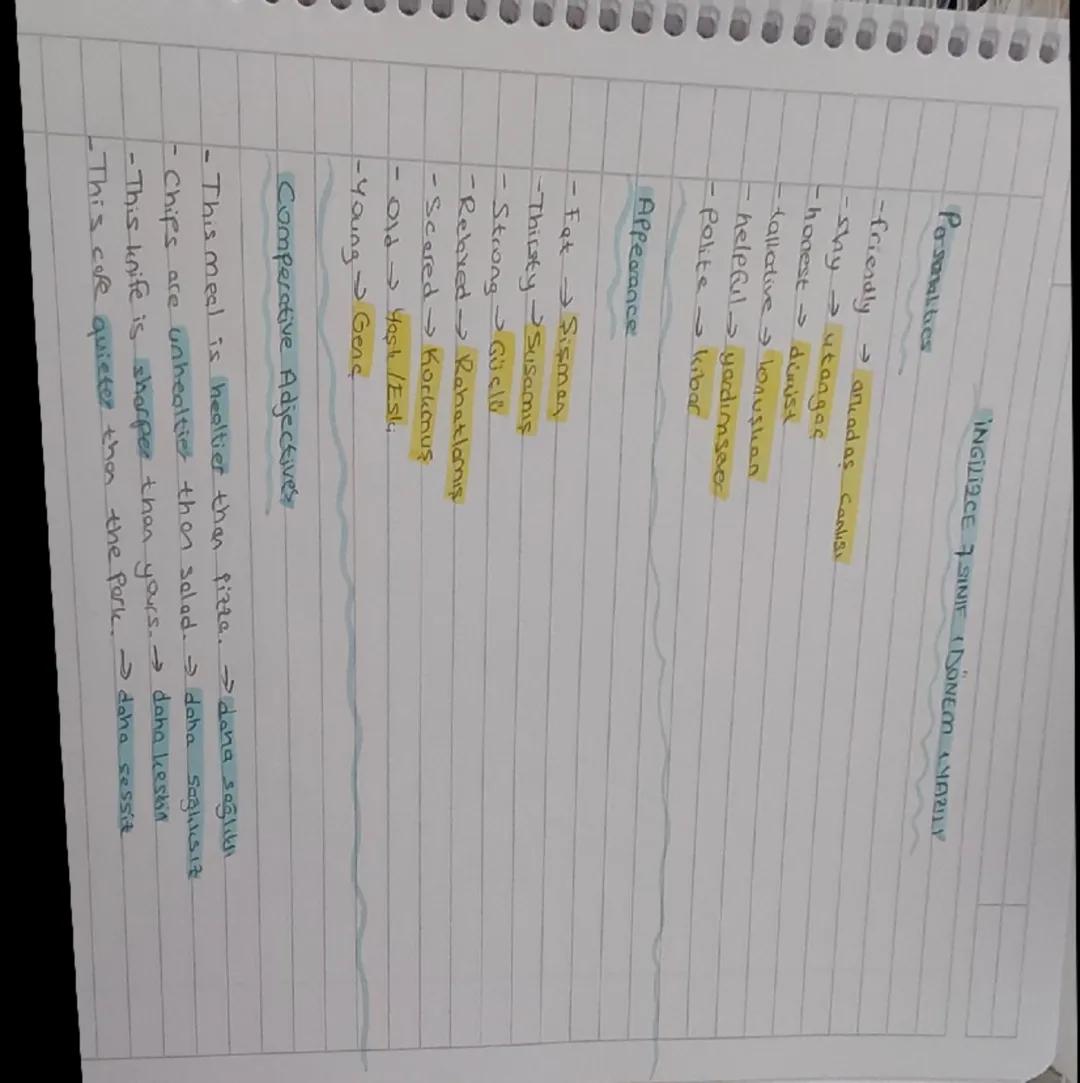 İNGİLİZCE 7.SINIF 1.DÖNEM 1.YAZILI
Personalities
- friendly → arkadaş canlısı
- shy → utangaç
- honest → dürüst
- tallative → konuşkan
- helpful → yardımsever
- polite → kibar
Appearance
- Fat → Şişman
- Thirsty → Susamış
- Strong → Güçlü
- Relaxed → Rahatlamış
- Scared → Korkmuş
- Old → Yaşlı/Eski
- Young → Genç
Comperative Adjectives
- This meal is healtier than pizza. → daha sağlıklı
- Chips are unhealtier than salad. → daha sağlıksız
- This knife is sharper than yours. → daha keskin
- This cafe quieter than the park. → daha sessiz